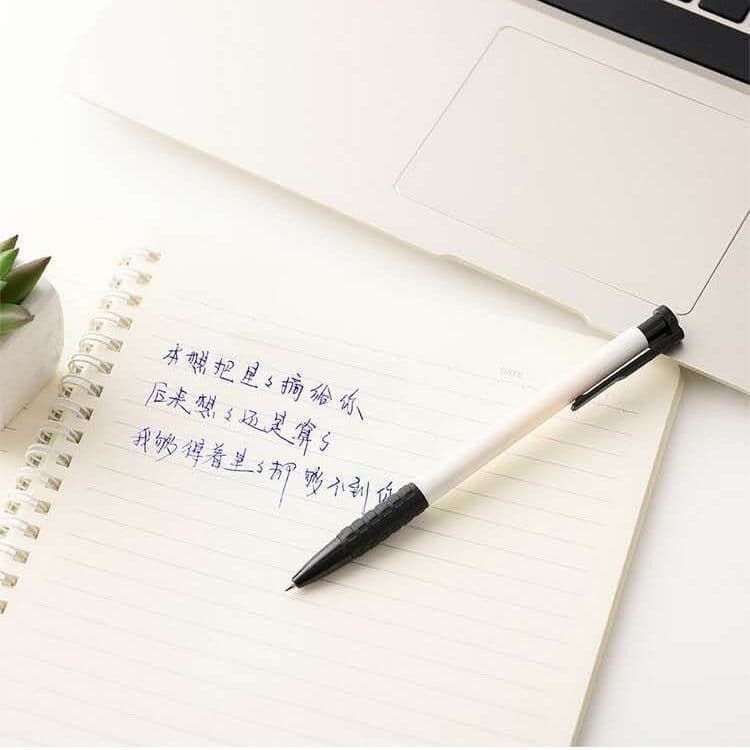 DATE
本想把星星摘给你
后来想了还是算了
我够得着星星却够不到你